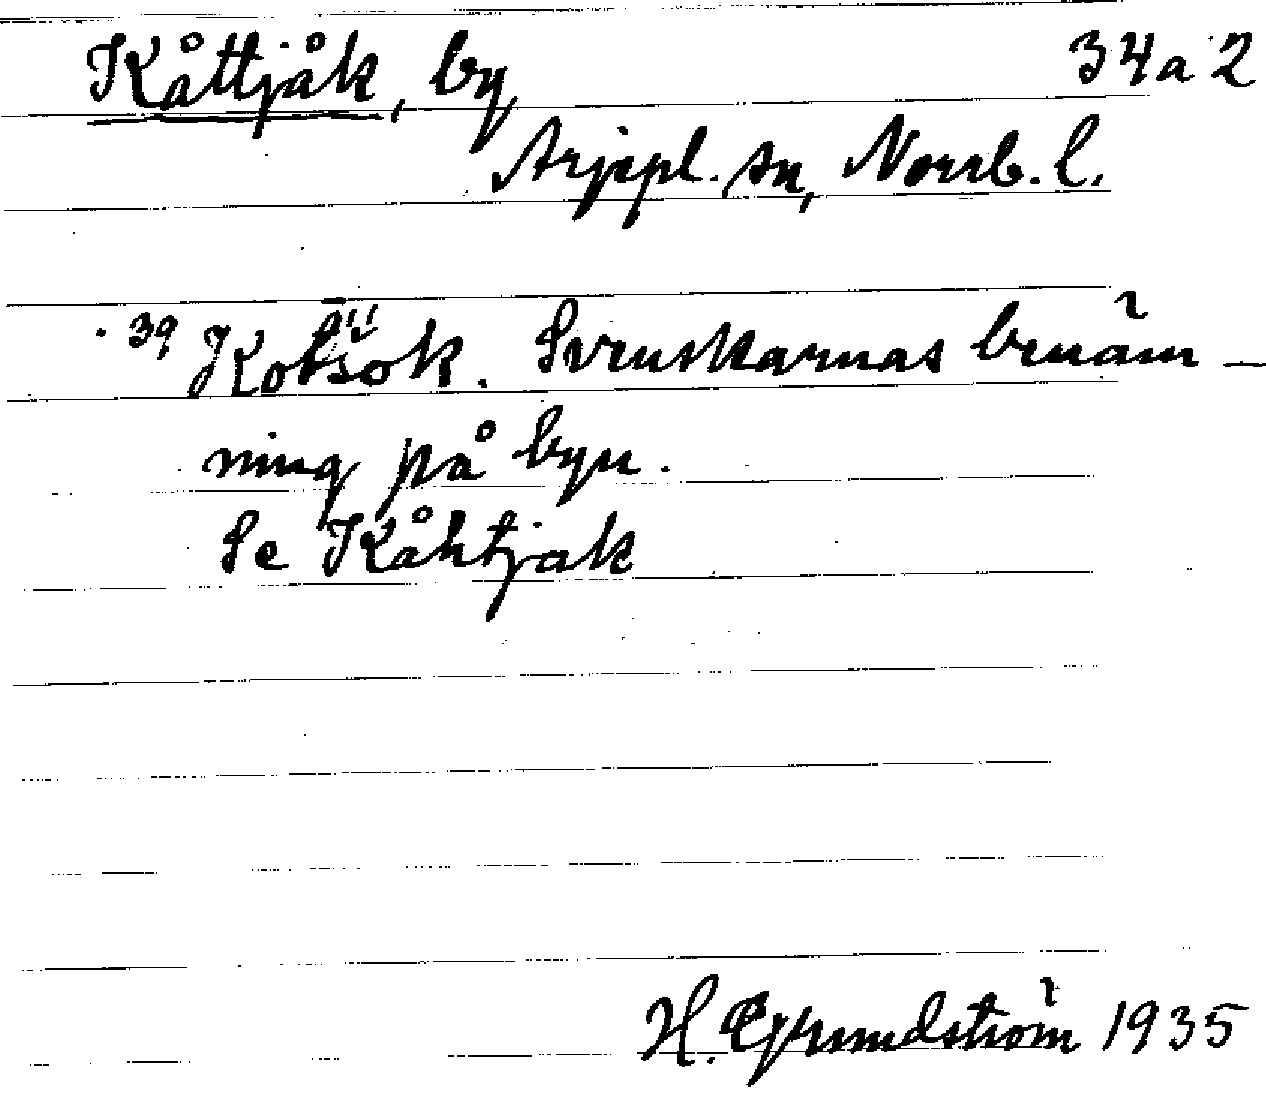 Kåttjåk, by 34a2
Arjepl. sn, Norrb. l.
39 Kotsok. Svenskarnas benäm-
ning på byn.
Se Kåhtjak
H. Grundström 1935